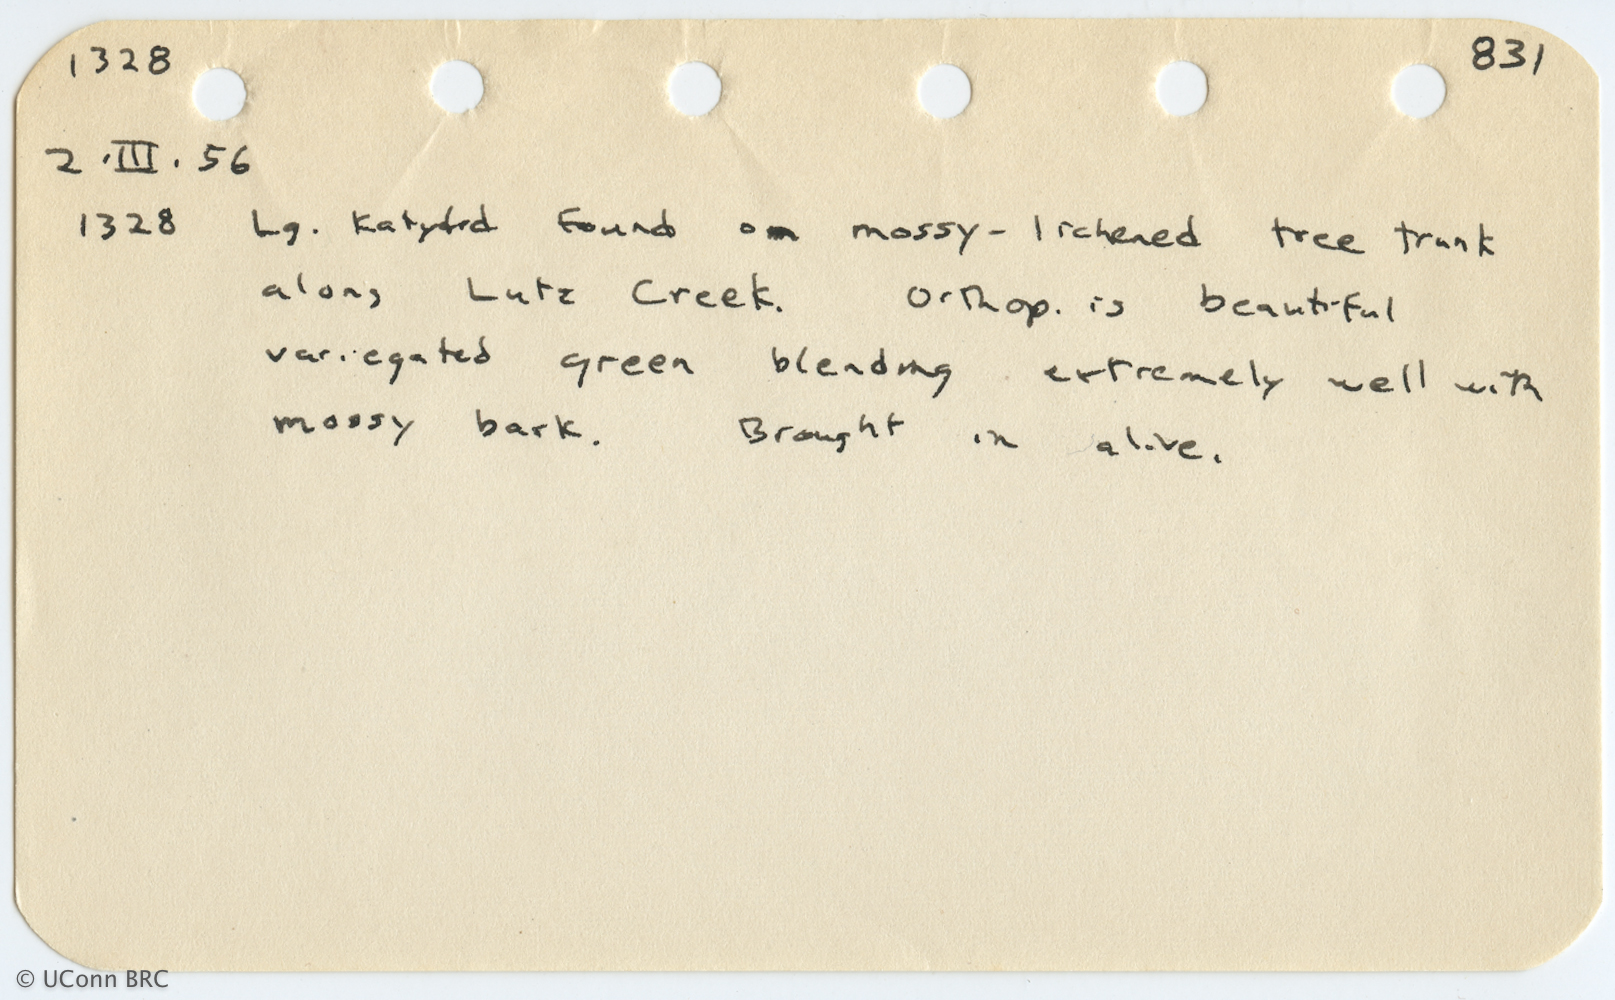 1328 831
2.III.56
1328 Lg. Katydid found on mossy-lichened tree trunk
along Lutz Creek. Orthop. is beautiful
variegated green blending extremely well with
mossy bark. Brought in alive.
© UConn BRC